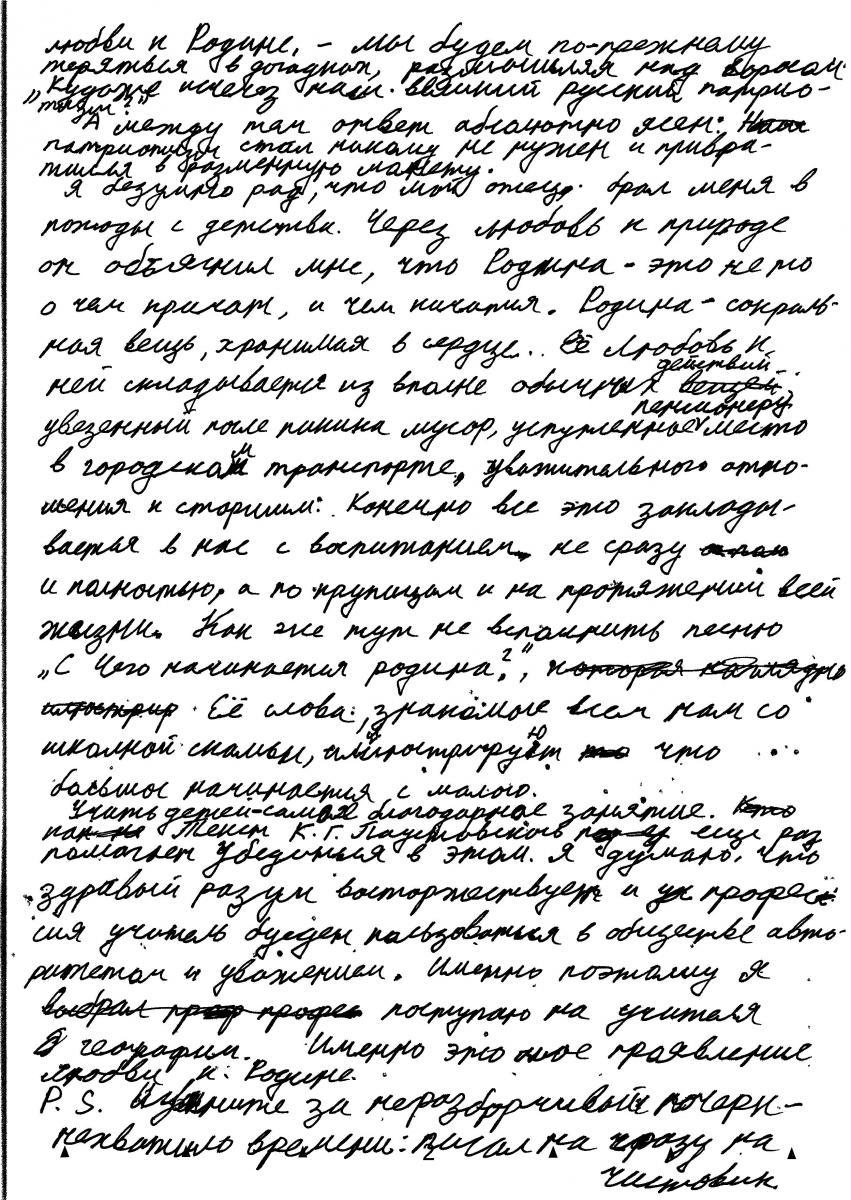 любви к Родине, - мы будем по-прежнему
теряться в догадках, размышляя над вопросом:
„Куда же исчез наш великий русский патрио-
тизм?"
А между тем ответ абсолютно ясен:
патриотизм стал никому не нужен и превра-
тился в разменную монету.
Я безумно рад, что мой отец брал меня в
походы с детства. Через любовь к природе
он объяснил мне, что Родина - это не то
о чем кричат, и чем кичатся. Родина - сокраль-
ная вещь, хранимая в сердце... Её любовь к
действий
ней складывается из вполне обычных вещей:
пенсионеру
увезенный после пикника мусор, уступленное место
в городском транспорте, уважительного отно-
шения к старшим. Конечно все это заклады-
вается в нас с воспитанием, не сразу
и полностью, а по крупицам и на протяжении всей
жизни. Как же тут не вспомнить песню
„С чего начинается родина?", которая наглядно
иллюстрир Её слова, знакомые всем нам со
школной скамьи, иллюстрируют что ...
большое начинается с малого.
Учить детей - самое благодарное занятие. Кто
как не Текст К. Г. Паустовского еще раз
помогает убедиться в этом. Я думаю, что
здравый разум восторжествует и профес-
сия учитель будет пользоваться в обществе авто-
ритетом и уважением. Именно поэтому я
выбрал проф профес поступаю на учителя
географии. Именно это мое проявление
любви к Родине.
P. S. Извините за неразборчивый почерк -
нехватило времени: писал на сразу на
чистовик